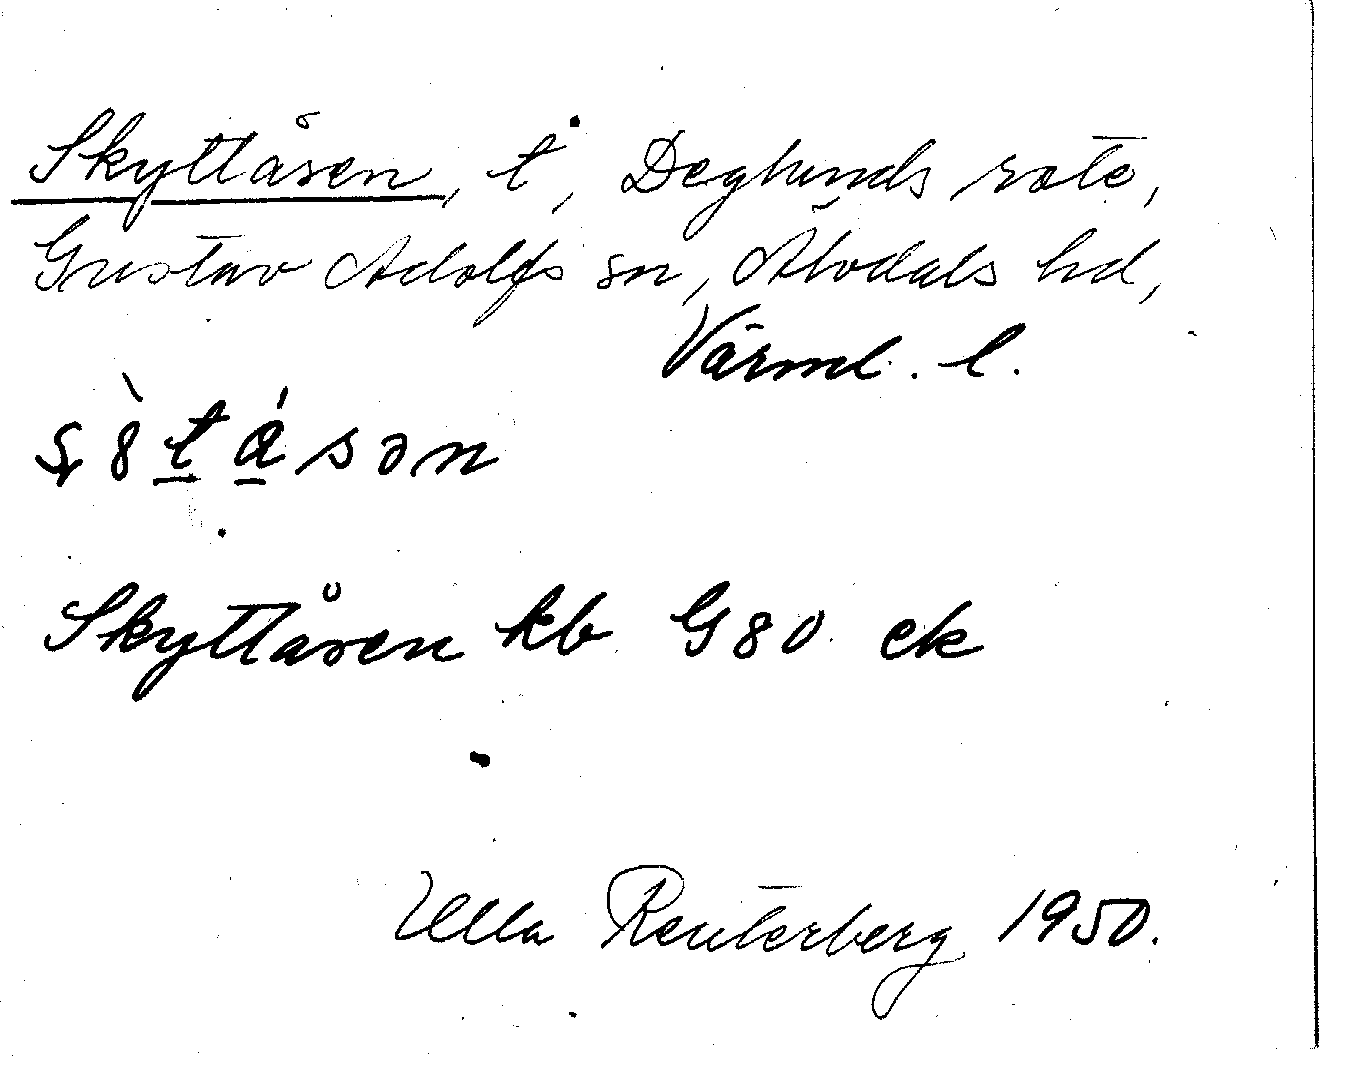 Skyttåsen, t, Deglunds rote,
Gustav Adolfs sn, Älvdals hd,
Värml. l.
Skyttåsen kb G80 ek
Ulla Reuterberg 1950.